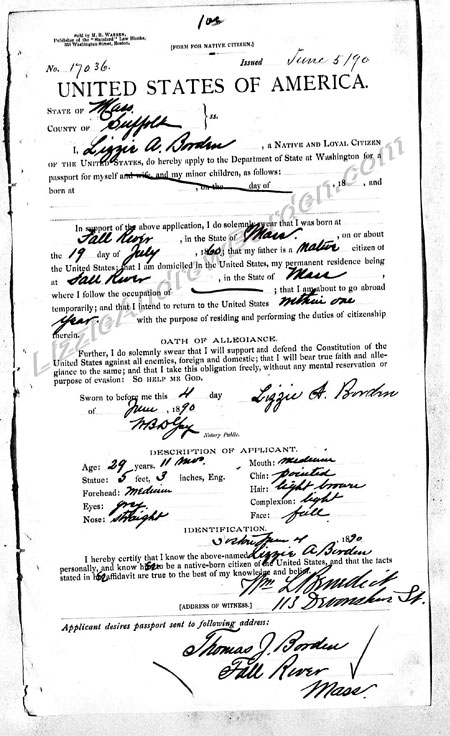 Sold by M. R. WARREN,
Publisher of the "Standard" Law Blanks,
336 Washington Street, Boston.
[FORM FOR NATIVE CITIZEN.]
No. 17036. Issued June 5/90
UNITED STATES OF AMERICA.
STATE OF Mass.
COUNTY OF Suffolk } ss.
I, Lizzie A. Borden, a NATIVE AND LOYAL CITIZEN
OF THE UNITED STATES, do hereby apply to the Department of State at Washington for a
passport for myself and wife, and my minor children, as follows:
born at , on the day of , 18 , and
In support of the above application, I do solemnly swear that I was born at
Fall River, in the State of Mass., on or about
the 19 day of July, 1860; that my father is a native citizen of
the United States; that I am domiciled in the United States, my permanent residence being
at Fall River, in the State of Mass,
where I follow the occupation of ; that I am about to go abroad
temporarily; and that I intend to return to the United States within one
year with the purpose of residing and performing the duties of citizenship
therein.
OATH OF ALLEGIANCE.
Further, I do solemnly swear that I will support and defend the Constitution of the
United States against all enemies, foreign and domestic; that I will bear true faith and alle-
giance to the same; and that I take this obligation freely, without any mental reservation or
purpose of evasion: SO HELP ME GOD.
Sworn to before me this 4 day
of June, 1890
Lizzie A. Borden
Notary Public.
DESCRIPTION OF APPLICANT.
Age: 29 years. 11 mos. Mouth: medium
Statue: 5 feet, 3 inches, Eng. Chin: pointed
Forehead: medium Hair: light brown
Eyes: grey Complexion: light
Nose: straight Face: full
IDENTIFICATION.
June 4 1890
I hereby certify that I know the above-named Lizzie A. Borden
personally, and know her to be a native-born citizen of the United States, and that the facts
stated in her affidavit are true to the best of my knowledge and belief.
Wm L. Benedict
113 Devonshire St.
[ADDRESS OF WITNESS.]
Applicant desires passport sent to following address:
Thomas J. Borden
Fall River
Mass.
LizzieAndrewBorden.com